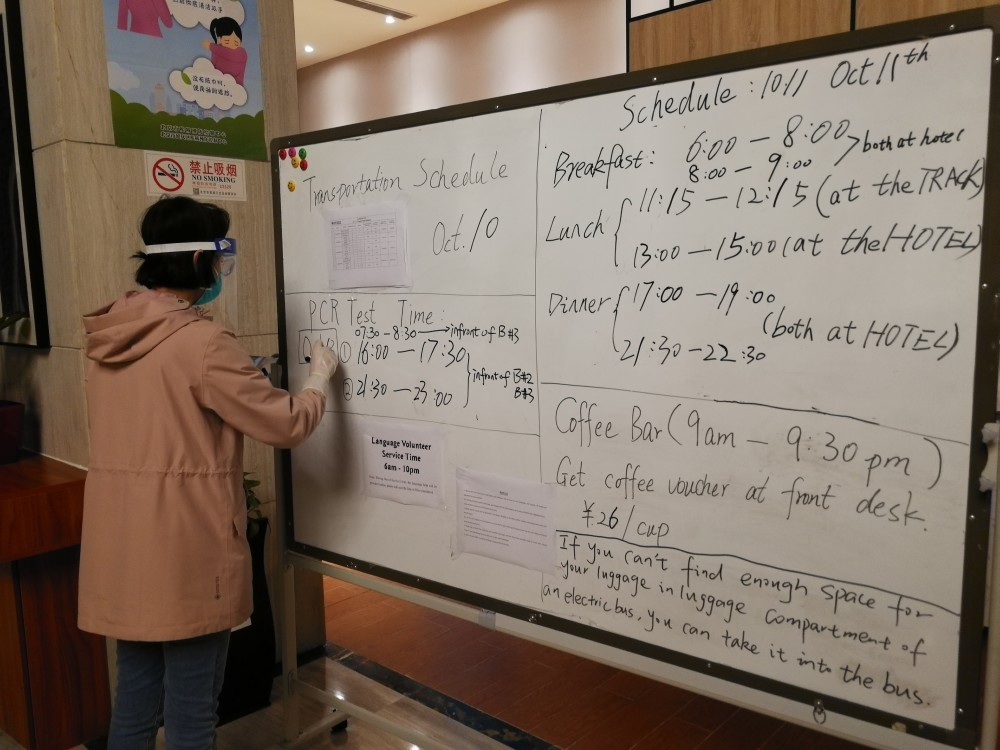 禁止吸烟
NO SMOKING
Transportation Schedule
Oct. 10
PCR Test Time:
07:30 - 8:30 → infront of B#3
① 16:00 — 17:30
② 21:30 — 23:00
infront of B#2
B#3
Language Volunteer
Service Time
6am - 10pm
Schedule: 10/11 Oct 11th
Breakfast: 6:00 — 8:00
8:00 — 9:00
both at hotel
Lunch
11:15 — 12:15 (at the TRACK)
13:00 — 15:00 (at the HOTEL)
Dinner
17:00 — 19:00
(both at HOTEL)
21:30 — 22:30
Coffee Bar (9am — 9:30pm)
Get coffee voucher at front desk.
¥26/cup
If you can't find enough space for
your luggage in luggage compartment of
an electric bus, you can take it into the bus.